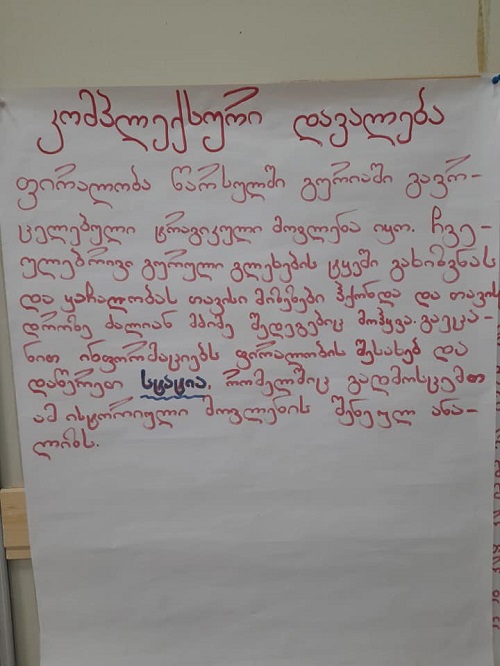 კომპლექსური დავალება
ფირალობა წარსულში გურიაში გავრ-
ცელებული ტრაგიკული მოვლენა იყო. ჩვე-
ულებრივი გურული გლეხების ტყეში გახიზვნას
და ყაჩაღობას თავისი მიზეზები ჰქონდა და თავის
დროზე ძალიან მძიმე შედეგებიც მოჰყვა. გაეცა-
ნით ინფორმაციებს ფირალობის შესახებ და
დაწერეთ სტატია, რომელშიც გადმოსცემთ
ამ ისტორიული მოვლენის შენეულ ანა-
ლიზს.